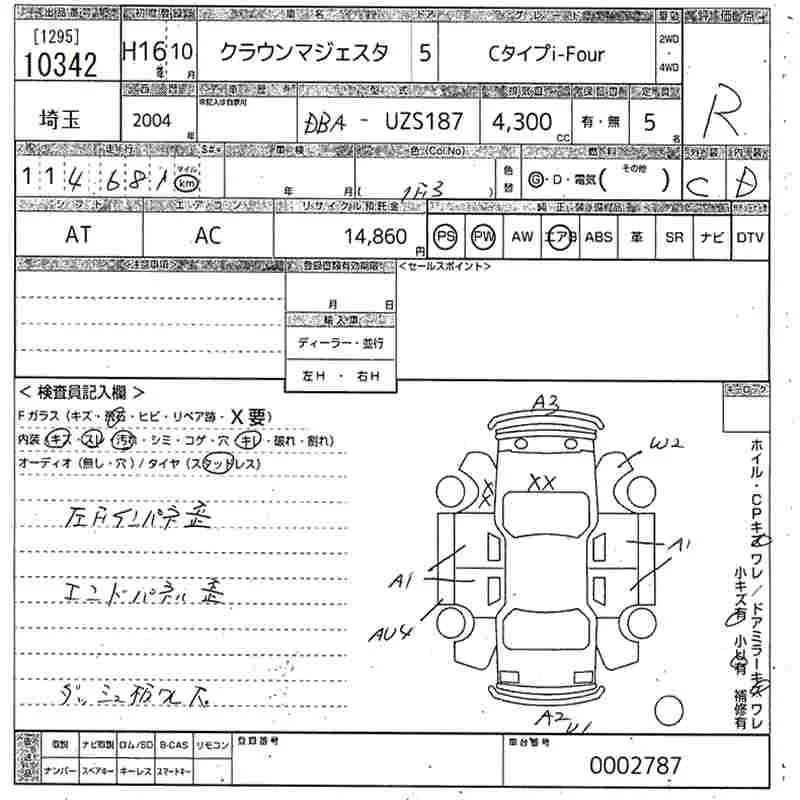 出品番号 初度登録 車名 ドア グレード 駆動 評価点
[1295]
10342 H16年 10月 クラウンマジェスタ 5 Cタイプi-Four 2WD・4WD R
西暦 車歴 型式 排気量 保証書 定員
未記入は自家用
埼玉 2004年 DBA - UZS187 4,300CC 有・無 5名
走行 S#* 車検 色(Col.No) 燃料 外装 内装
114,681 マイル km 年 月 ( 1F3 ) 色替 G・D・電気( その他 ) C D
シフト エアコン リサイクル預託金 純正装備品
AT AC 14,860円 PS PW AW エアB ABS 革 SR ナビ DTV
<注意事項> 登録書類有効期限 <セールスポイント>
月 日
輸入車
ディーラー・並行
左H ・ 右H
<検査員記入欄> キーロック
Fガラス(キズ・飛石・ヒビ・リペア跡・X要)
内装(キズ・スレ・汚れ・シミ・コゲ・穴・キレ・破れ・割れ)
オーディオ(無し・穴)/タイヤ(スタッドレス)
左Fインパネ歪
エンドパネル歪
ダッシュ板ワレ大
A3
W2
XX
XX
A1
A1
AU4
A2
U1
ホイル・CPキズ ワレ/ドアミラーキズ ワレ
小キズ有 小凹有 補修有
取説 ナビ取説 ロム/SD B-CAS リモコン 登録番号 車台番号
ナンバー スペアキー キーレス スマートキー 0002787